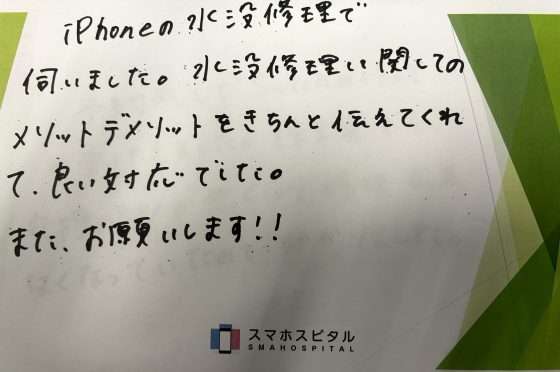 iPhoneの水没修理で
伺いました。水没修理に関しての
メリットデメリットをきちんと伝えてくれ
て、良い対応でした。
また、お願いします!!
スマホスピタル
SMAHOSPITAL